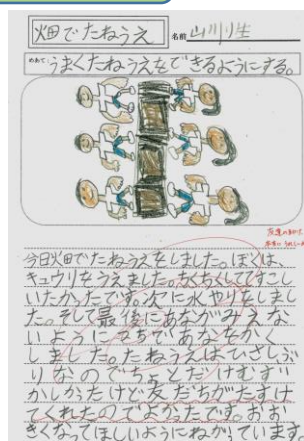 畑でたねうえ
名前 山川川生
めあて うまくたねうえをできるようにする。
今日火田でたねうえをしました。ぼくは、
キュウリをうえました。
いたかったです。次に水やりをしまし
た。そして最後にあながみえな
いようにつちであなをかく
しました。たねうえはひさしぶ
りなのでちょとだけむずい
かしかったけど友だちがたすけ
てくれたのでよかったです。おお
きくなってほしいようにねがています